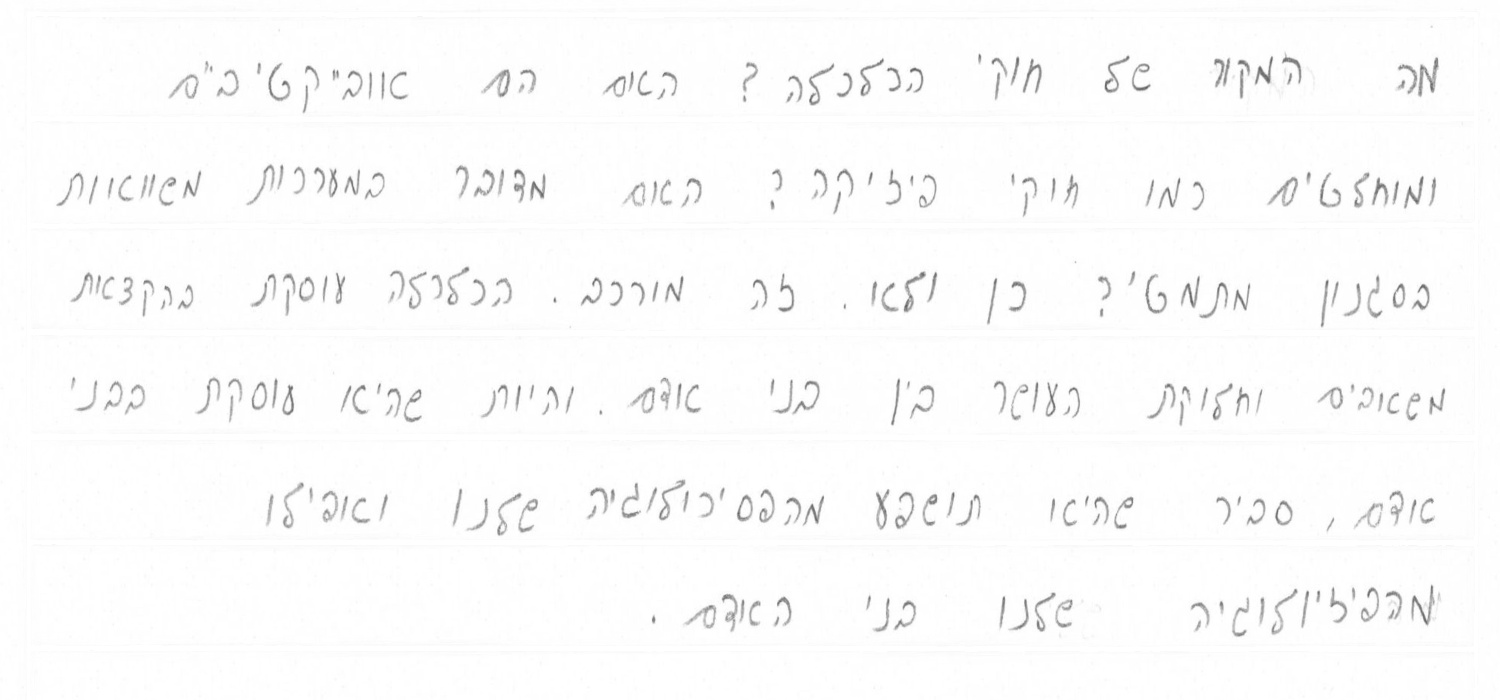 מה המקור של חוקי הכלכלה? האם הם אובייקטיביים
ומוחלטים כמו חוקי פיזיקה? האם מדובר במערכות משוואות
בסגנון מתמטי? כן ולא. זה מורכב. הכלכלה עוסקת בהקצאת
משאבים וחלוקת העושר בין בני אדם. והיות שהיא עוסקת בבני
אדם, סביר שהיא תושפע מהפסיכולוגיה שלנו ואפילו
מהפיזיולוגיה שלנו בני האדם.